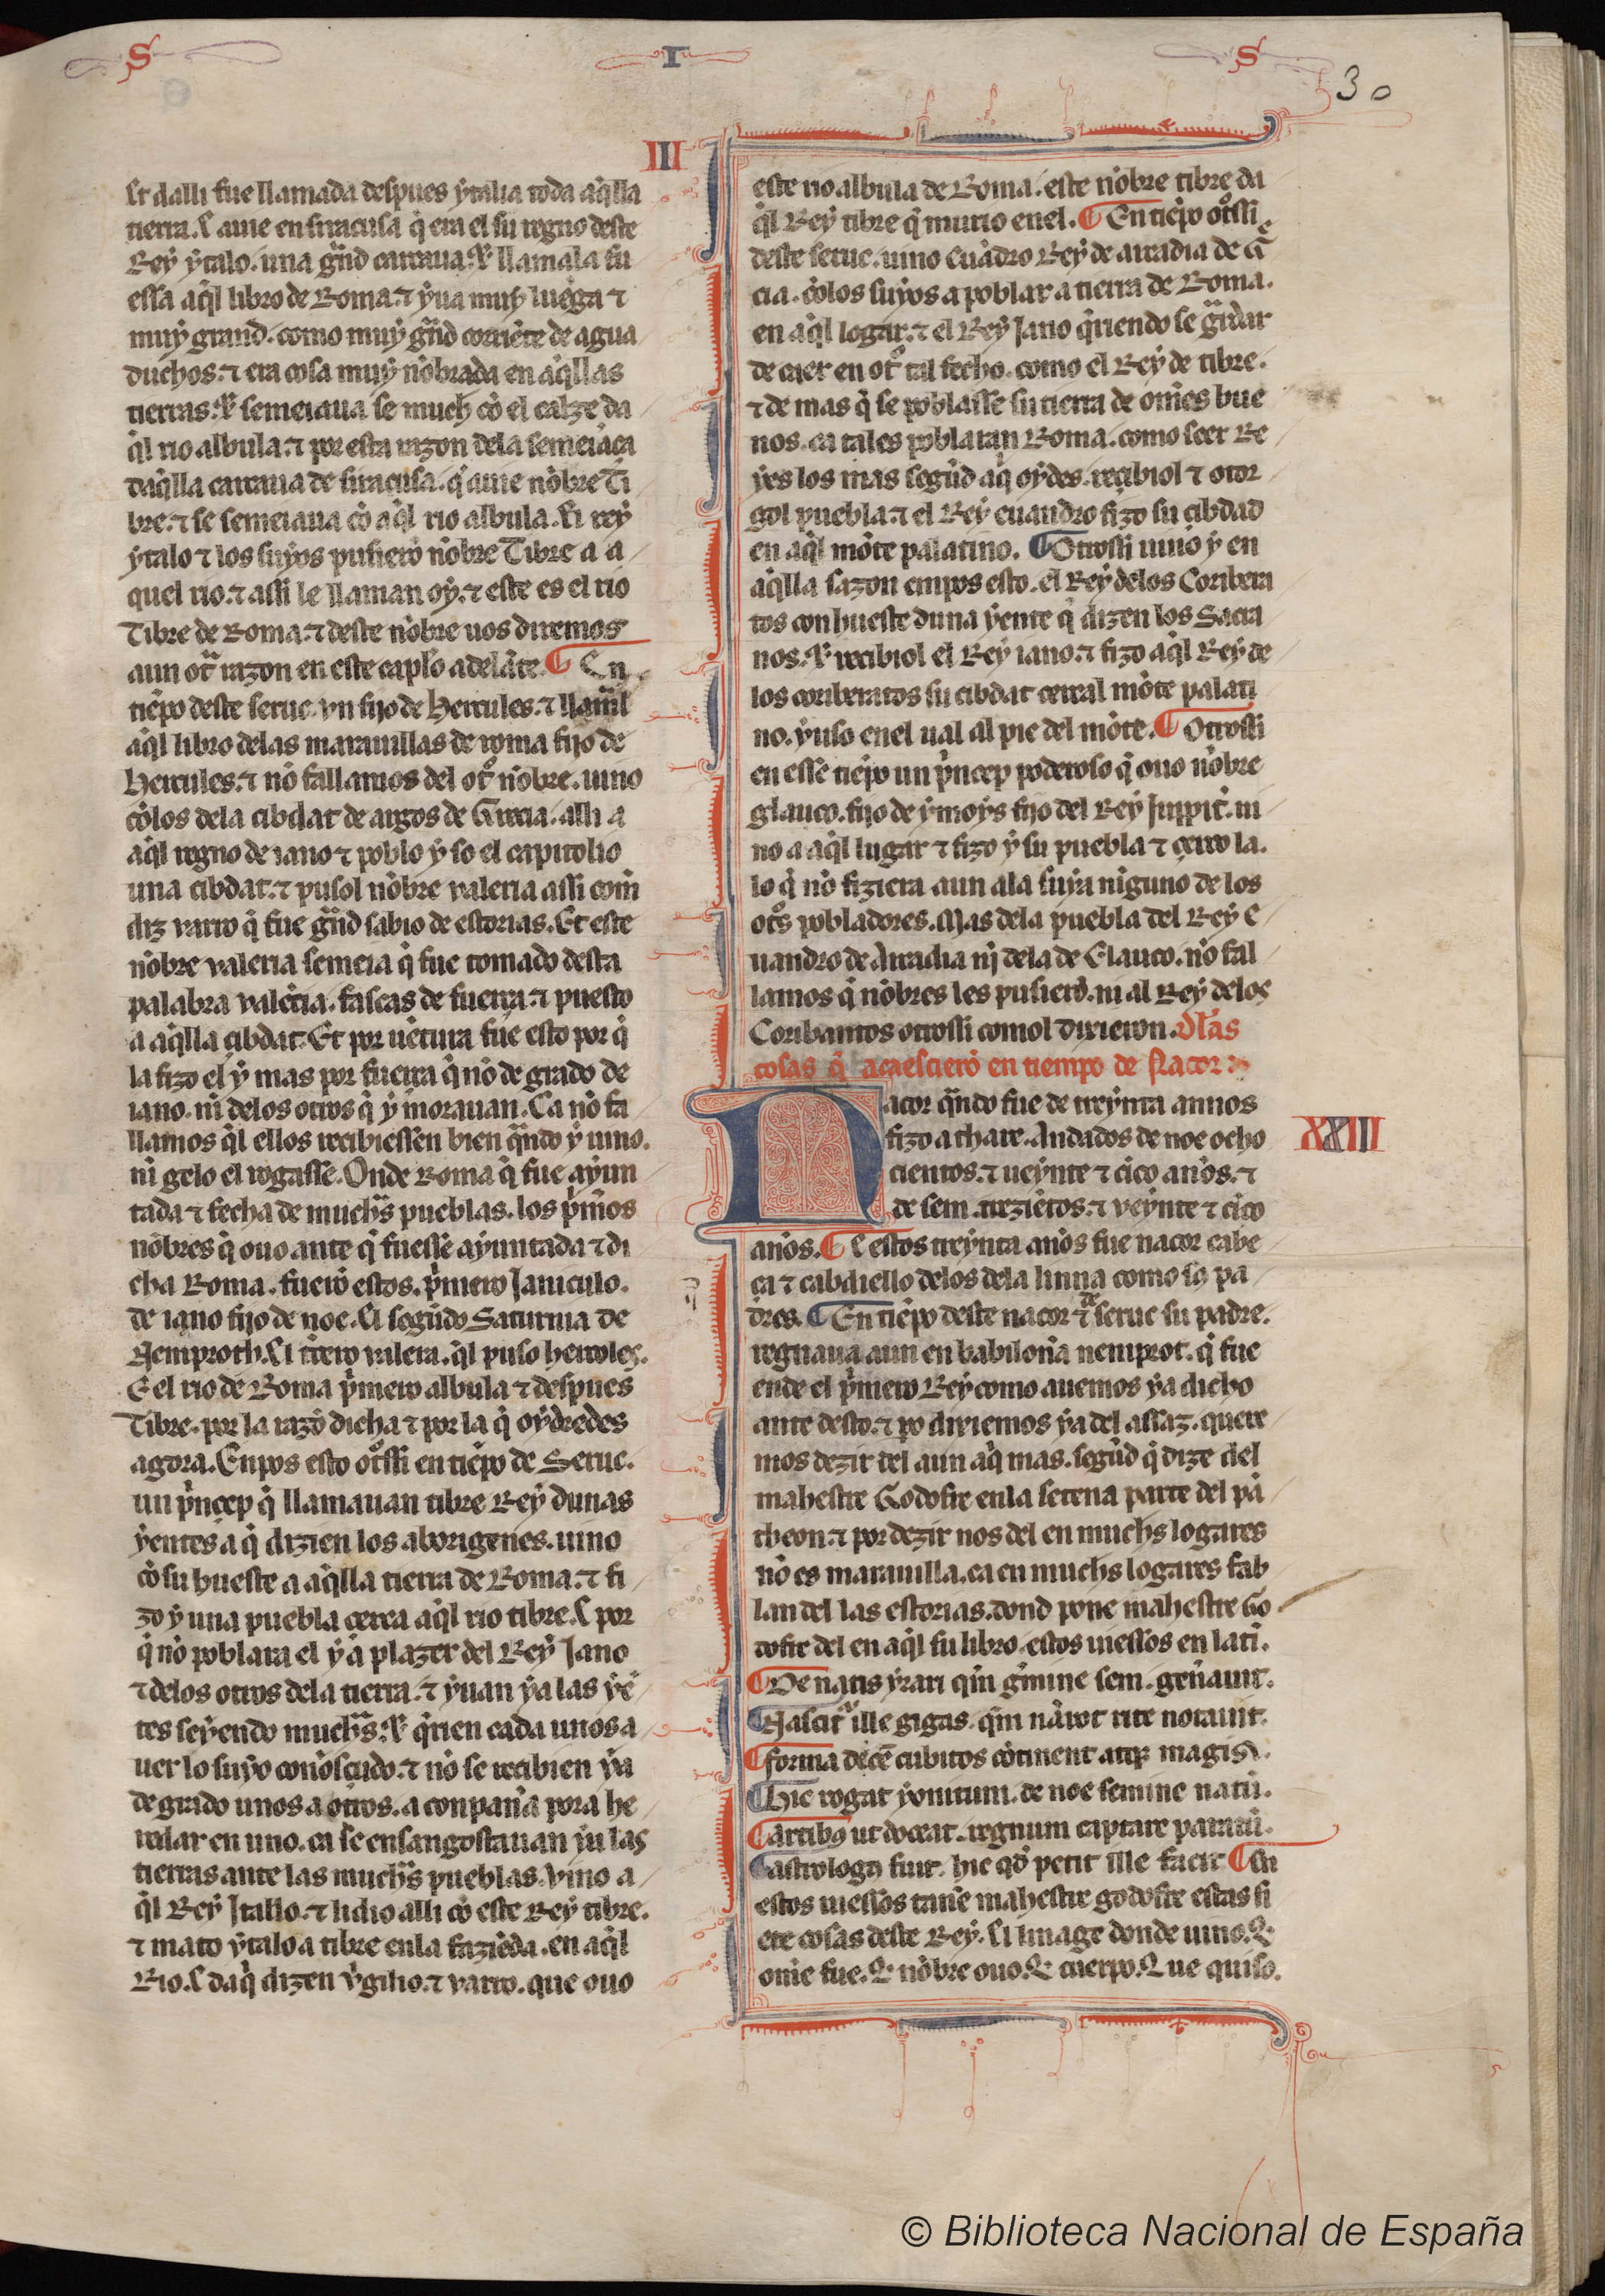 S I S
30
III
Et dalli fue llamada despues ytalia toda aq̃lla
tierra. E auie en siracusa q̃ era el su regno deste
Rey ytalo. una gũd carcaua. ⁊ llamala fu
essa aq̃l libro de Roma. ⁊ yua muy luẽga ⁊
muy grand. como muy gũd corriẽte de agua
duchos. ⁊ era cosa muy nõbrada en aq̃llas
tierras. ⁊ semeiaua se much cõ el calze da
q̃l rio albula. ⁊ por esta razon dela semeiãça
daq̃lla carcaua de siracusa. q̃ auie nõbre Ti
bre. ⁊ se semeiaua cõ aq̃l rio albula. El rey
ytalo ⁊ los suyos pusierõ nõbre Tibre a a
quel rio. ⁊ assi le llaman oy. ⁊ este es el rio
Tibre de Roma. ⁊ deste nõbre uos diremos
aun otͣ razon en este capl̃o adelãte. ¶ En
tiẽpo deste seruc. un fijo de Hercules. ⁊ llamal
aq̃l libro delas marauillas de roma fijo de
Hercules. ⁊ nõ fallamos del otͦ nõbre. uino
cõlos dela cibdat de argos de Grecia. alli a
aq̃l regno de iano ⁊ poblo y so el capitolio
una cibdat. ⁊ pusol nõbre valeria assi com̃
diz varro q̃ fue gũd sabio de estorias. Et este
nõbre valeria semeia q̃ fue tomado desta
palabra valẽcia. fascas de fuerça. ⁊ puesto
a aq̃lla çibdat. Et por uẽtura fue esto por q̃
la fizo el y mas por fuerça q̃ nõ de grado de
iano. ni delos otros q̃ y morauan. Ca nõ fa
llamos q̃l ellos recibiessen bien qũdo y uino.
ni gelo el rogasse. Onde Roma q̃ fue ayun
tada ⁊ fecha de muchͣs pueblas. los p̃mos
nõbres q̃ ouo ante q̃ fuesse ayuntada ⁊ di
cha Roma. fuerõ estos. p̃mero Janiculo.
de iano fijo de noe. El segũdo Saturnia de
Nemproth. El t̃cero valera. q̃l puso hercoles.
E el rio de Roma p̃mero albula ⁊ despues
Tibre. por la razõ dicha ⁊ por la q̃ oydredes
agora. Enpos esto otͦssi en tiẽpo de Seruc.
un p̃ncep q̃ llamauan tibre Rey dunas
yentes a q̃ dizien los aborigenes. uino
cõ su hueste a aq̃lla tierra de Roma. ⁊ fi
zo y una puebla cerca aq̃l rio tibre. E por
q̃ nõ poblara el y a plazer del Rey Jano
⁊ delos otros dela tierra. ⁊ yuan ya las yẽ
tes seyendo muchͣs. ⁊ q̃rien cada unos a
uer lo suyo conõsçudo. ⁊ nõ se recibien ya
de grado unos a otros. a conpaña pora he
redar en uno. ca se ensangostauan ya las
tierras ante las muchͣs pueblas. Vino a
q̃l Rey Jtallo. ⁊ lidio alli cõ este Rey tibre.
⁊ mato ytalo a tibre enla faziẽda. en aq̃l
Rio. E daq̃ dizen v̉gilio. ⁊ varro. que ouo
este rio albula de Roma. este nõbre tibre da
q̃l Rey tibre q̃ murio enel. ¶ En tiẽpo otͦssi
deste seruc. uino Euãdro Rey de arcadia de Gͤ
cia. cõlos suyos a poblar a tierra de Roma.
en aq̃l logar. ⁊ el Rey Jano q̃riendo se gͣrdar
de caer en otͦ tal fecho. como el Rey de tibre.
⁊ de mas q̃ se poblasse su tierra de om̃es bue
nos. ca tales poblaran Roma. como seer Re
yes los mas segũd aq̃ oydes. recibiol ⁊ otor
gol puebla. ⁊ el Rey euandro fizo su çibdad
en aq̃l mõte palatino. ¶ Otrossi uino y en
aq̃lla sazon empos esto. el Rey delos Coribera
tos con hueste duna yente q̃ dizen los Sacra
nos. ⁊ recibiol el Rey iano. ⁊ fizo aq̃l Rey de
los coriberatos su cibdat cercal mõte palati
no. yuso enel ual al pie del mõte. ¶ Otrossi
en esse tiẽpo un p̃ncep poderoso q̃ ouo nõbre
glauco. fijo de ymoys fijo del Rey Juppit̃. ui
no a aq̃l lugar ⁊ fizo y su puebla ⁊ çerco la.
lo q̃ nõ fiziera aun ala suya nĩguno de los
otͦs pobladores. Mas dela puebla del Rey E
uandro de Arcadia nj dela de Glauco. nõ fal
lamos q̃ nõbres les pusierõ. ni al Rey delos
Coribantos otrossi comol dixieron. Dlas
cosas q̃ acaescierõ en tiempo de Nacor.
XXIII
Nacor qũdo fue de treynta annos
fizo a thare. Andados de noe ocho
cientos. ⁊ ueynte ⁊ cĩco años. ⁊
de sem. treziẽtos. ⁊ veynte ⁊ cĩco
años. ¶ E estos treynta años fue nacor cabe
ça ⁊ cabdiello delos dela linna como so pa
dres. ¶ En tiẽpo deste nacor ⁊ de seruc su padre.
regnaua aun en babiloña nemprot. q̃ fue
ende el p̃mero Rey como auemos ya dicho
ante desto. ⁊ po dixiemos ya del assaz. quere
mos dezir del aun aq̃ mas. segũd q̃ dize del
mahestre Godofre enla setena parte del pã
theon. ⁊ por dezir nos del en muchs logares
nõ es marauilla. ca en muchs logares fab
lan del las estorias. dond pone mahestre Go
dofre del en aq̃l su libro. estos uiessos en latĩ.
¶ De natis yrari qm̃ gm̃ine sem. geñauit.
¶ Nascit᷑ ille gigas. qm̃ nãrot rite notauit.
¶ forma decẽ cubitos cõtinent atq; magist̃.
¶ Hic rogat yonitum. de noe semine natũ.
¶ artibꝰ ut doceat. regnum captare paratũ.
¶ astrologꝰ fuit. hic qđ petit ille facit ¶ En
estos uiessos tañe mahestre godofre estas si
ete cosas deste Rey. El linage donde uino. Q̃
om̃e fue. Q̃ nõbre ouo. Q̃ cuerpo. Que quiso.
© Biblioteca Nacional de España